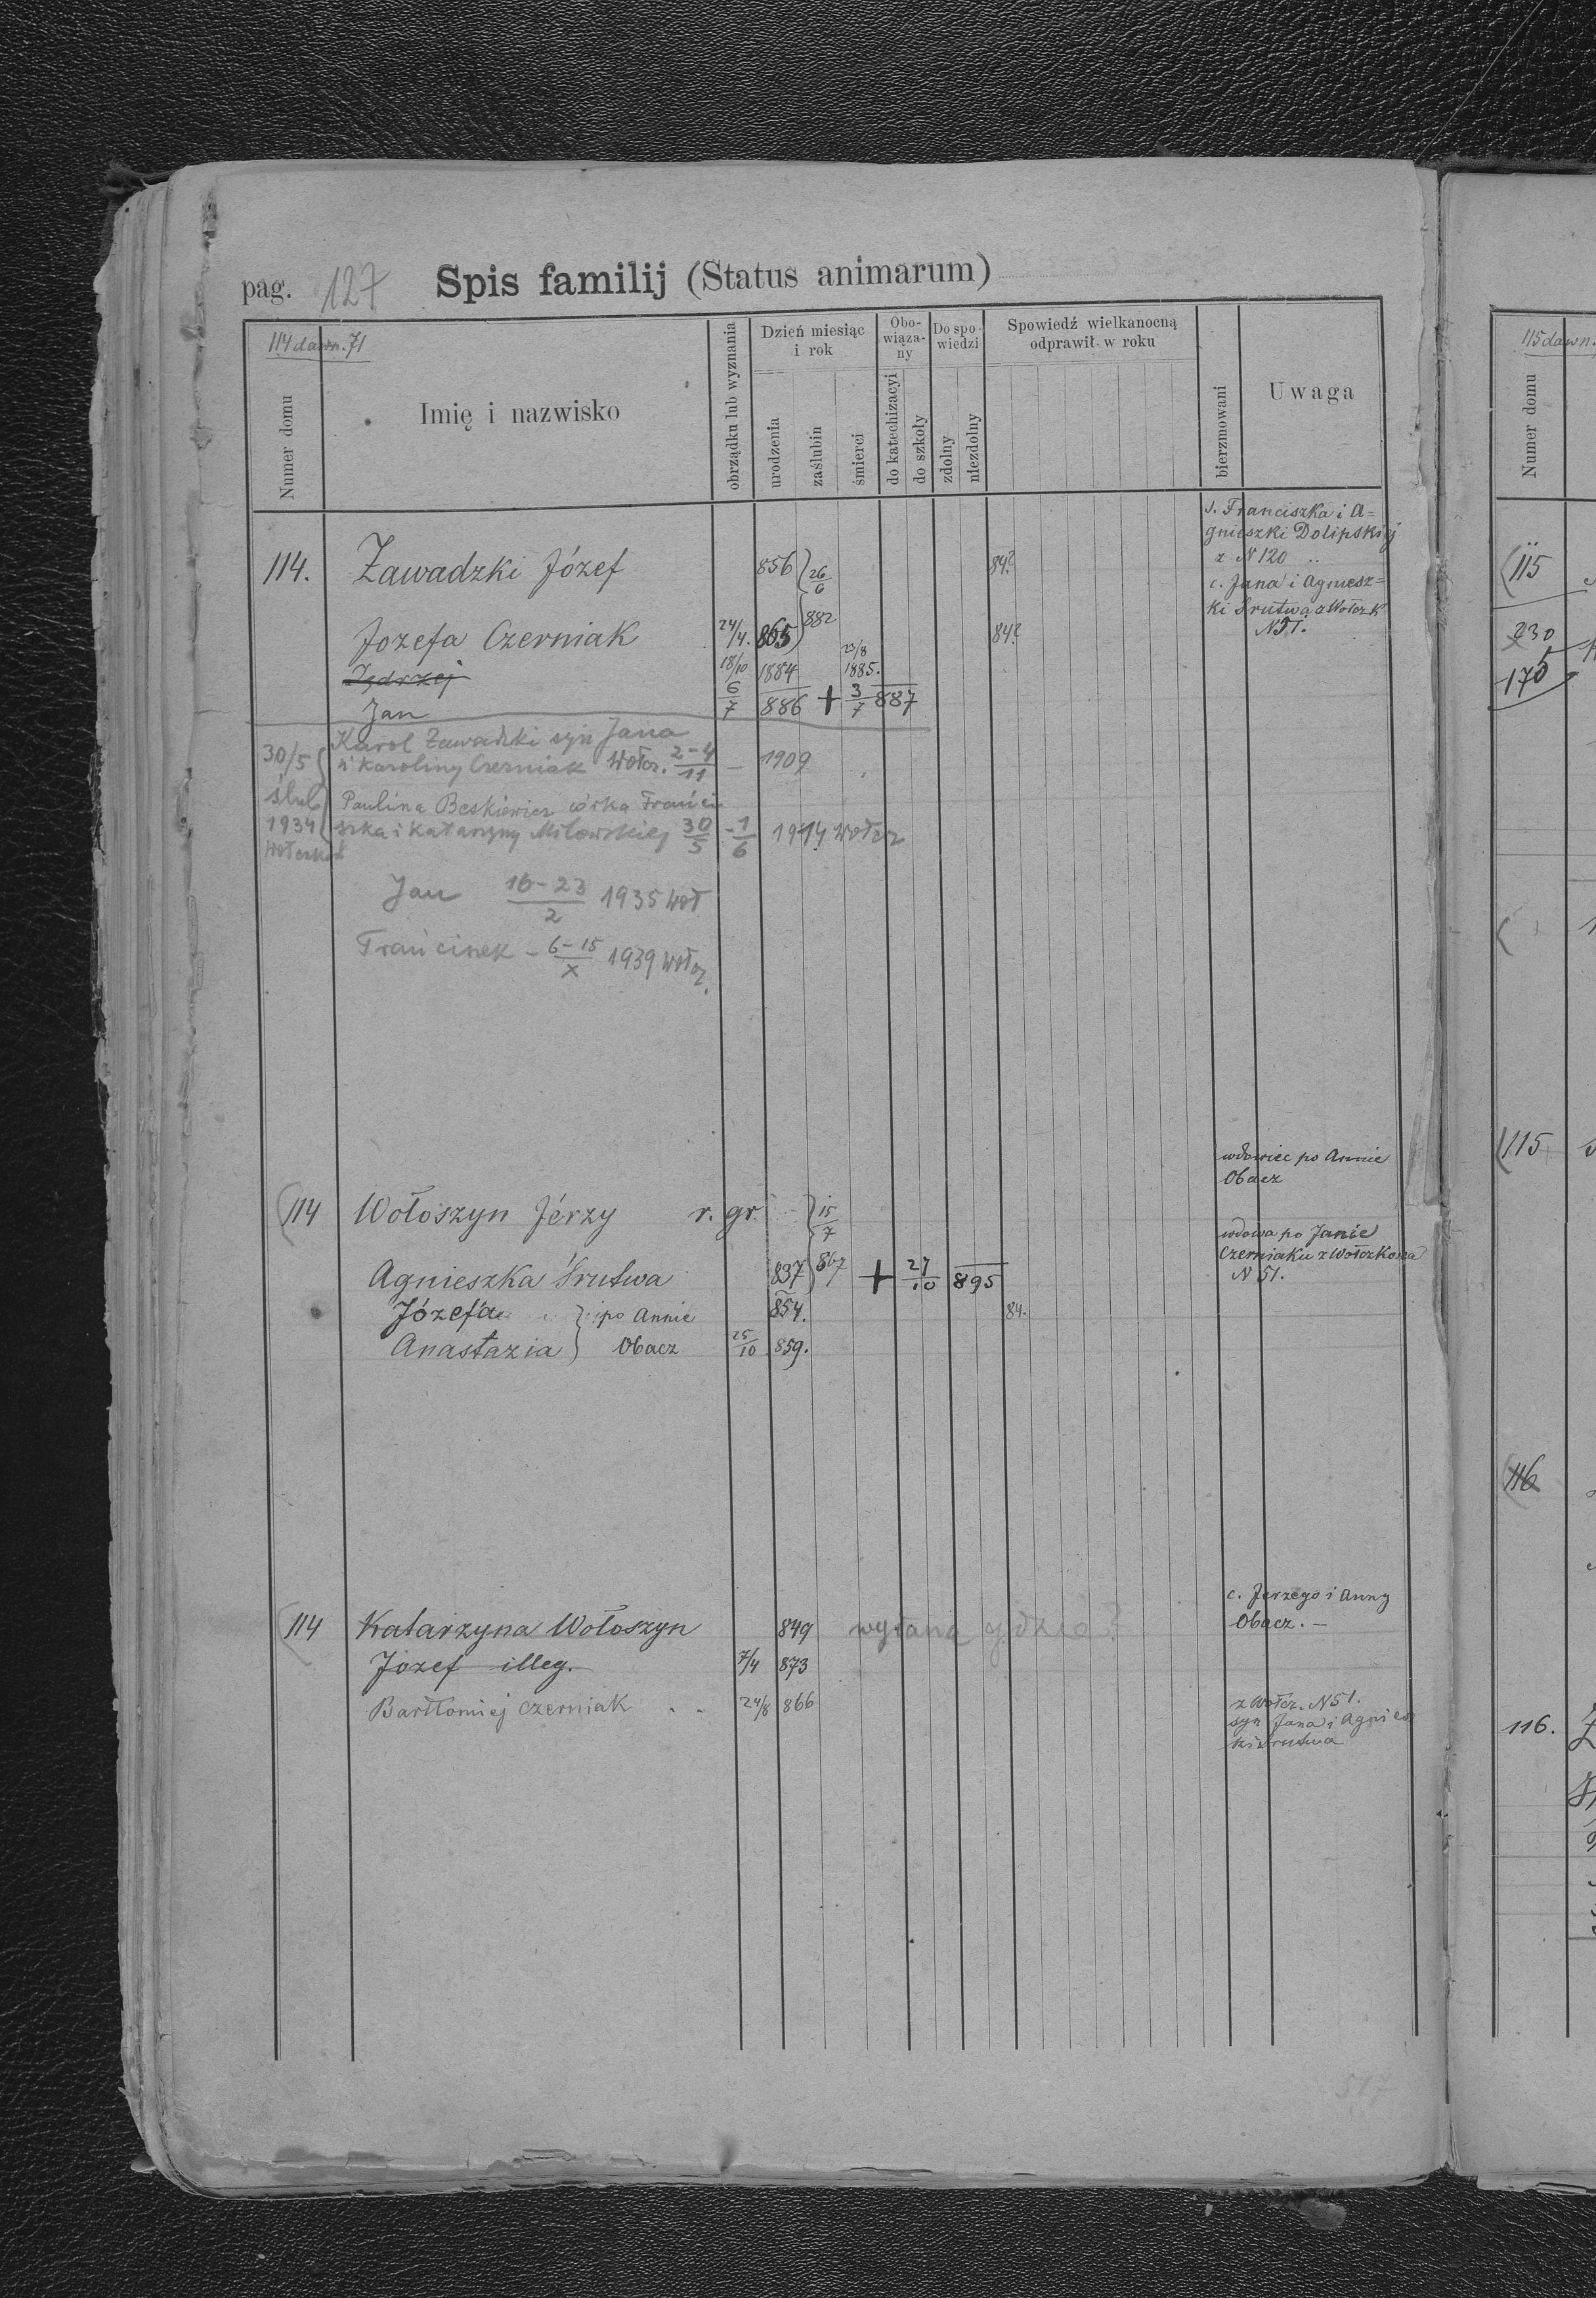 pag. 127 Spis familij (Status animarum)
114 dawn. 71
Numer domu
Imię i nazwisko
obrządku lub wyznania
Dzień miesiąc i rok
urodzenia
zaślubin
śmierci
Obowiązany
do katechizacyi
do szkoły
Do spowiedzi
zdolny
niezdolny
Spowiedź wielkanocną odprawił w roku
bierzmowani
Uwaga
s. Franciszka i A=
gnieszki Dolipskiej
z N 120
114. Zawadzki Józef 856 26/6 84?
c. Jana i Agniesz=
ki Srutwa z Wołczk
N 51.
Jozefa Czerniak 24/4. 865 882 84?
Jędrzej 18/10 1884 23/8 1885.
Jan 6/7 886 + 3/7 887
Karol Zawadzki syn Jana
30/5 i Karoliny Czerniak Wołcz. 2-4/11 – 1909
ślub Paulina Beskiewicz córka Franci
1934 szka i Katarzyny Milowskiej 30/5 - 1/6 1914 Wołcz
Jan 16-23/2 1935 Woł
Franciszek - 6-15/X 1939 Wołcz.
wdowiec po Annie
Obacz
(114 Wołoszyn Jérzy r. gr. 15/7
wdowa po Janie
Czerniaku z Wołczkowa
N 51.
Agnieszka Srutwa 837 867 + 27/10 895
Józefa po Annie 854. 84.
Anastazia Obacz 25/10 859.
c. Jerzego i Anny
Obacz. –
(114 Katarzyna Wołoszyn 849 gdzie?
Józef illeg. 7/4 873
Bartłomiej Czerniak . . 24/8 866
z Wołcz. N 51.
syn Jana i Agniesz
ki Srutwa
517
115 dawn.
Numer domu
(115
230
170
(115
(116
116.